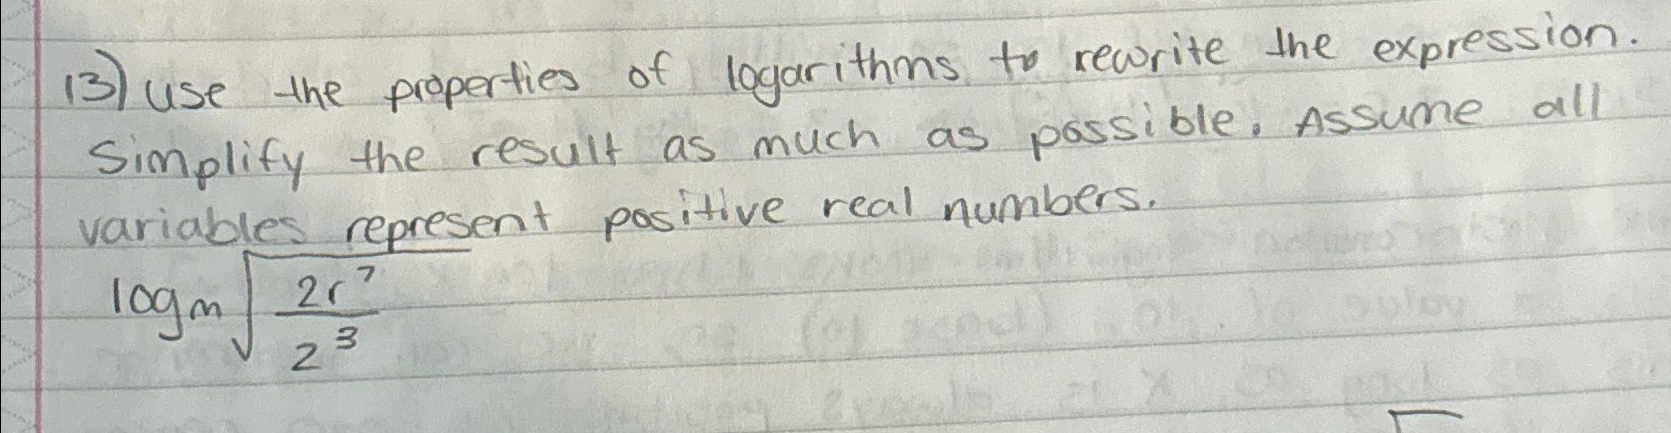 13) use the properties of logarithms to rewrite the expression.
Simplify the result as much as possible. Assume all
variables represent positive real numbers.
log_m √(2r^7 / z^3)